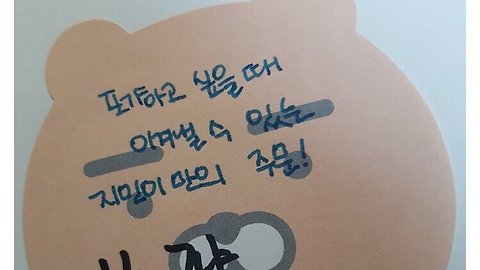 포기하고 싶을 때
이겨낼 수 있는
지민이만의 주문!